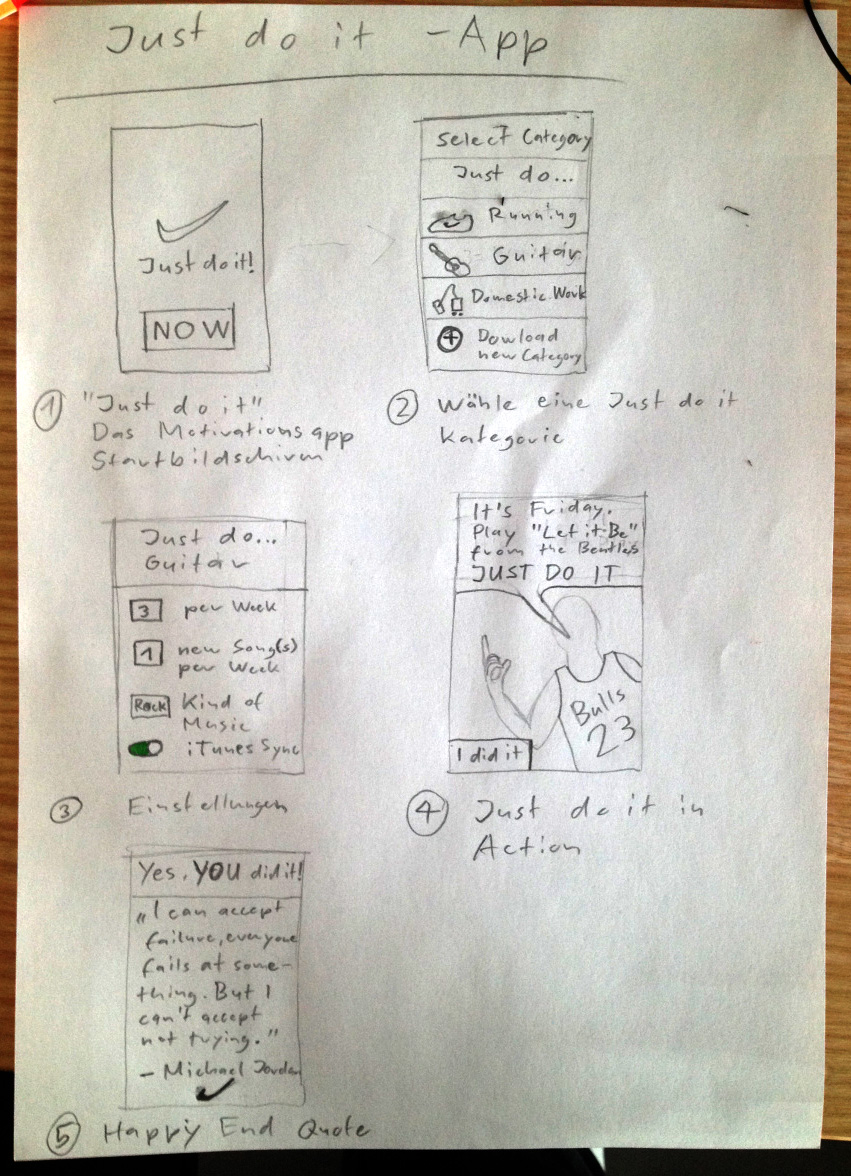 Just do it - App
Just do it!
NOW
① "Just do it"
Das Motivationsapp
Startbildschirm
Select Category
Just do...
Running
Guitar
Domestic Work
Dowload
new Category
② Wähle eine Just do it
Kategorie
Just do...
Guitar
3 per Week
1 new Song(s)
per Week
Rock Kind of
Music
iTunes Sync
③ Einstellungen
It's Friday.
Play "Let it Be"
from the Beatles
JUST DO IT
Bulls
23
I did it
④ Just do it in
Action
Yes, YOU did it!
„I can accept
failure, everyone
fails at some-
thing. But I
can't accept
not trying."
- Michael Jordan
⑤ Happy End Quote